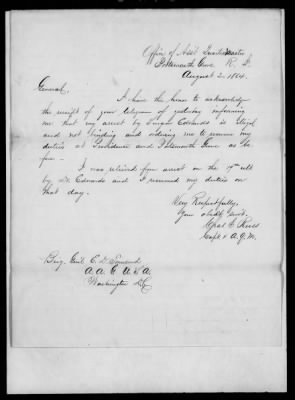 Office of Asst Quartermaster
Portsmouth Grove R. I.
August 2, 1864.
General,
I have the honor to acknowledge
the receipt of your telegram of yesterday informing
me that my arrest by Surgeon Edwards is illegal
and not binding and ordering me to resume my
duties at Providence and Portsmouth Grove as
I was relieved from arrest on the 19th ult
by Dr Edwards and I resumed my duties on
that day.
Very Respectfully,
Your obedt Servt.
Capt & A.Q.M.
Brig. Genl C. D.
A. A. G. U S A
Washington DC